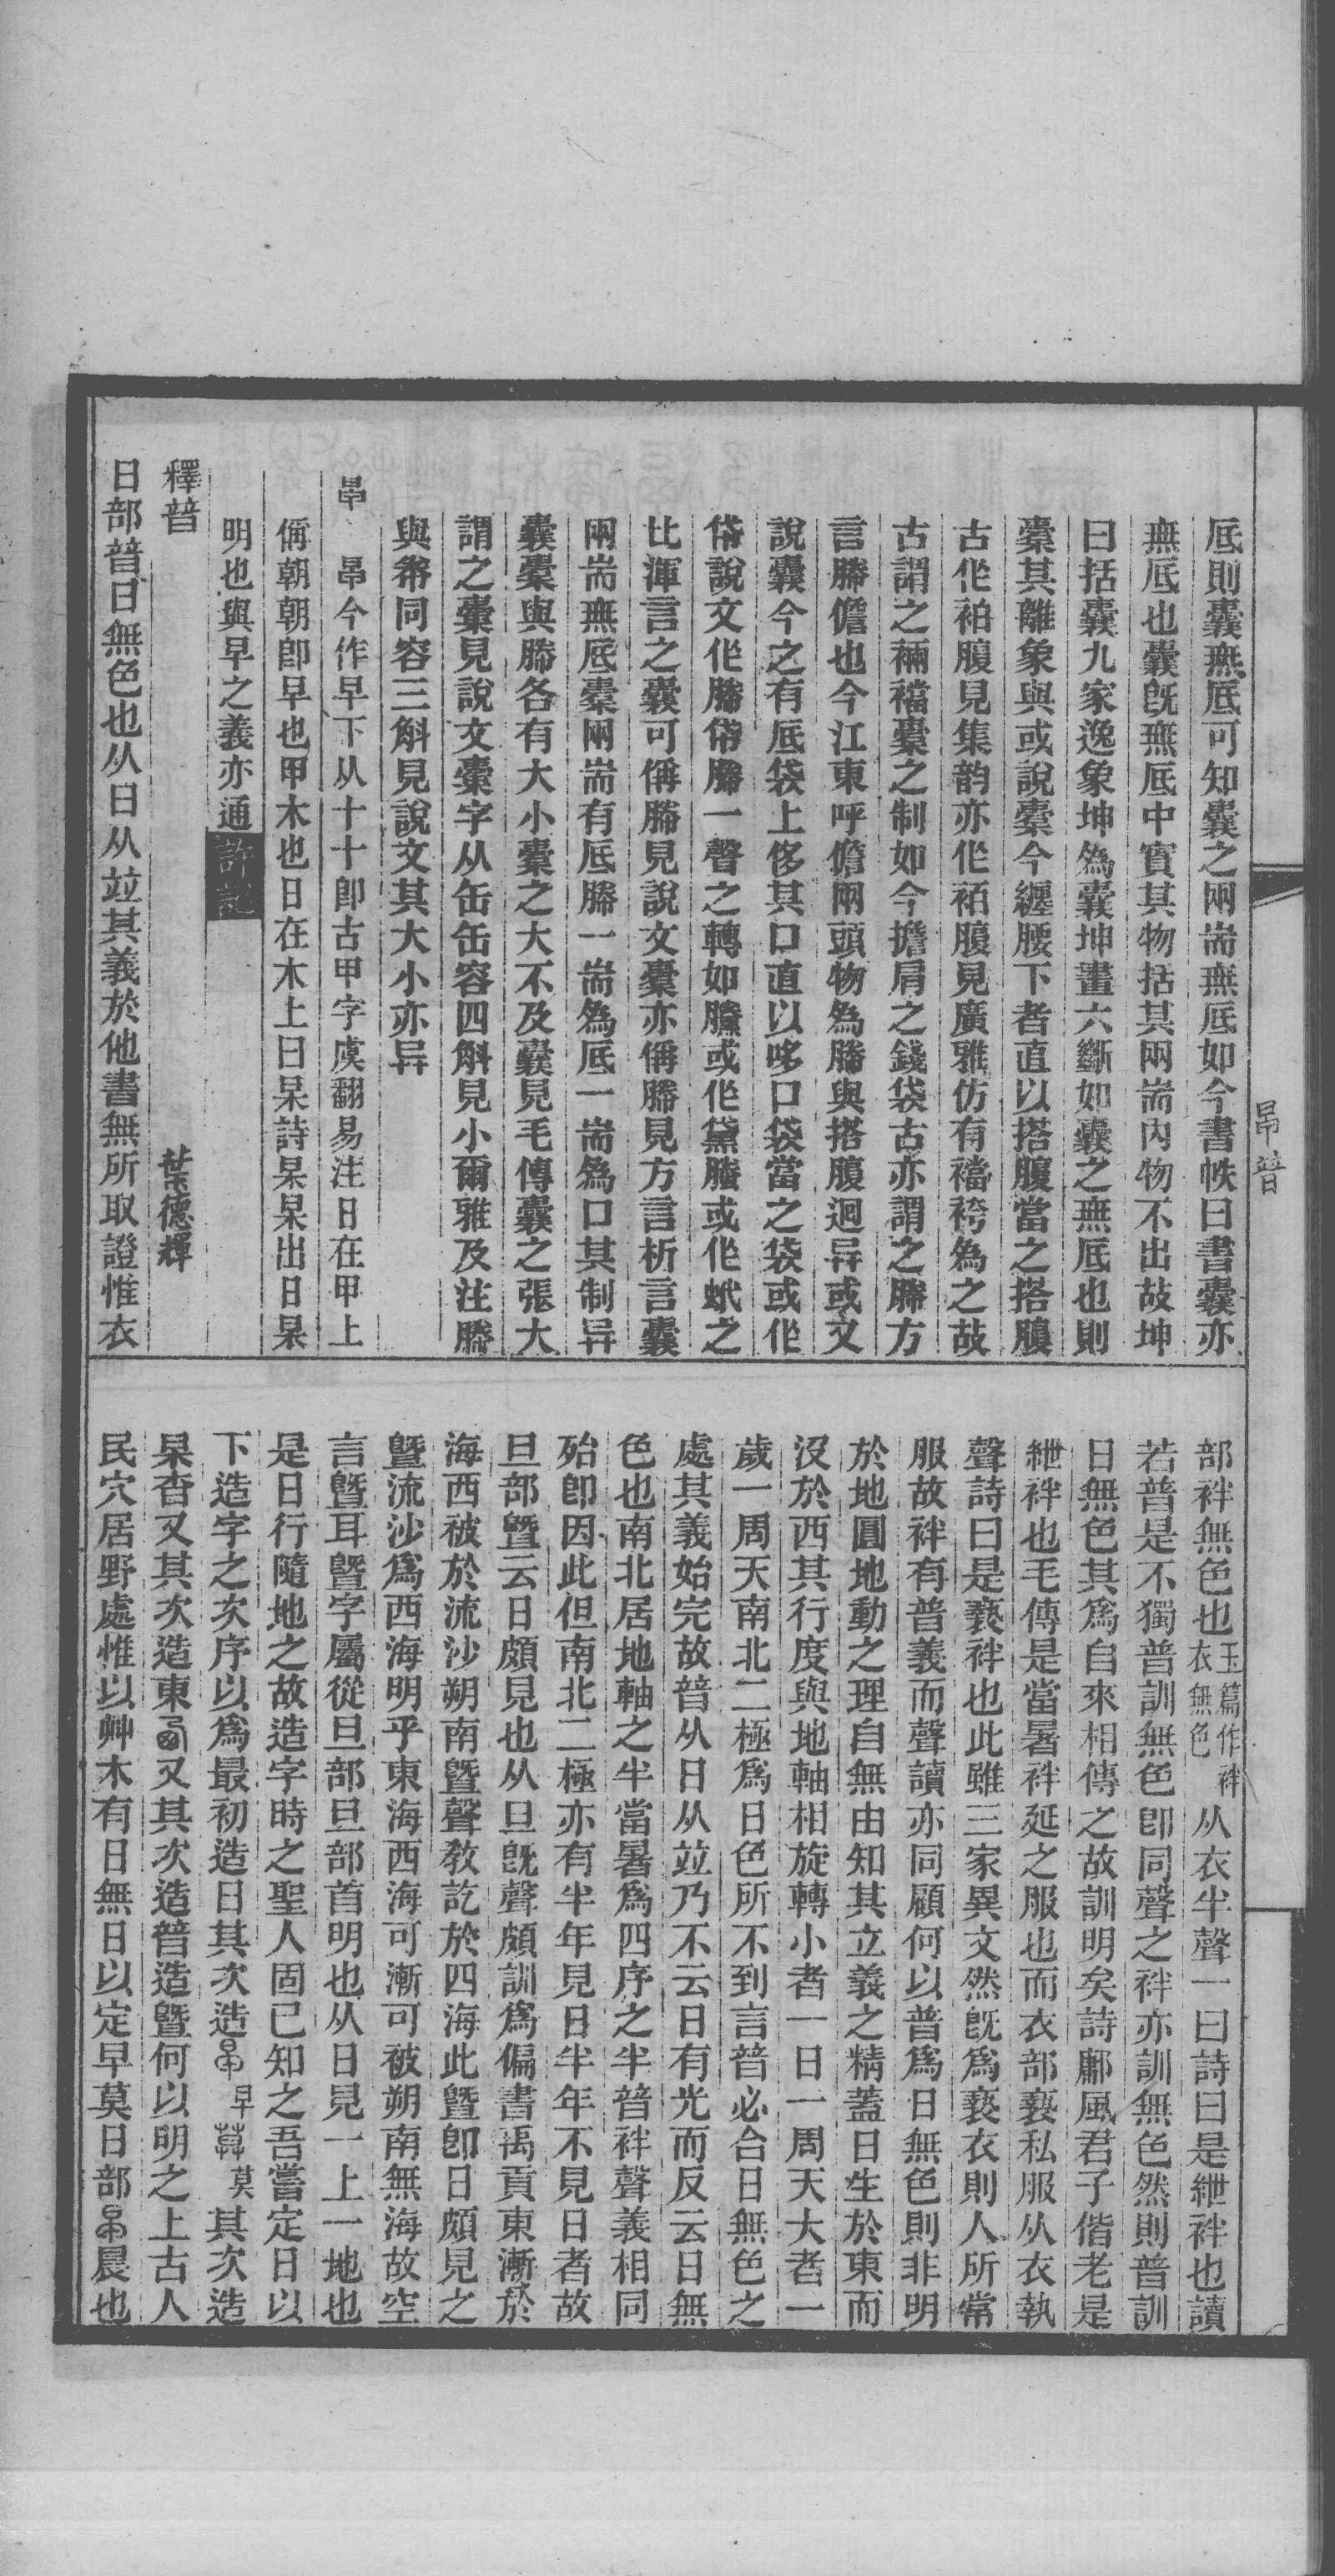 厎則囊無厎可知囊之兩耑無厎如今書帙曰書囊亦
無厎也囊旣無厎中實其物括其兩耑內物不出故坤
曰括囊九家逸象坤爲囊坤畫六斷如囊之無厎也則
橐其離象與或說橐今纏腰下者直以搭膢當之搭膢
古作袙腹見集韵亦作袹腹見廣雅仿有襠袴爲之故
古謂之裲襠橐之制如今擔肩之錢袋古亦謂之幐方
言幐儋也今江東呼儋兩頭物爲幐與搭腹迥异或又
說囊今之有厎袋上侈其口直以哆口袋當之袋或作
帒說文作幐帒幐一聲之轉如黱或作黛螣或作蚮之
比渾言之囊可偁幐見說文橐亦偁幐見方言析言囊
兩耑無厎橐兩耑有厎幐一耑爲厎一耑爲口其制异
囊橐與幐各有大小橐之大不及囊見毛傳囊之張大
謂之橐見說文橐字从缶缶容四斛見小爾雅及注幐
與帣同容三斛見說文其大小亦异
𣅊 𣅊今作早下从十十卽古甲字虞翻易注日在甲上
偁朝朝卽早也甲木也日在木上曰杲詩杲杲出日杲
明也與早之義亦通許記
釋暜
葉德輝
日部暜日無色也从日从竝其義於他書無所取證惟衣
𣅊暜
部袢無色也玉篇作袢衣無色从衣半聲一曰詩曰是紲袢也讀
若普是不獨普訓無色卽同聲之袢亦訓無色然則普訓
日無色其爲自來相傳之故訓明矣詩鄘風君子偕老是
紲袢也毛傳是當暑袢延之服也而衣部褻私服从衣執
聲詩曰是褻袢也此雖三家異文然旣爲褻衣則人所常
服故袢有普義而聲讀亦同顧何以普爲日無色則非明
於地圓地動之理自無由知其立義之精蓋日生於東而
沒於西其行度與地軸相旋轉小者一日一周天大者一
歲一周天南北二極爲日色所不到言暜必合日無色之
處其義始完故暜从日从竝乃不云日有光而反云日無
色也南北居地軸之半當暑爲四序之半暜袢聲義相同
殆卽因此但南北二極亦有半年見日半年不見日者故
旦部暨云日頗見也从旦旣聲頗訓爲偏書禹貢東漸於
海西被於流沙朔南暨聲敎訖於四海此暨卽日頗見之
暨流沙爲西海明乎東海西海可漸可被朔南無海故空
言暨耳暨字屬從旦部旦部首明也从日見一上一地也
是日行隨地之故造字時之聖人固已知之吾嘗定日以
下造字之次序以爲最初造日其次造𣅊早𦱤莫其次造
杲杳又其次造東又其次造暜造暨何以明之上古人
民穴居野處惟以艸木有日無日以定早莫日部𣅊晨也